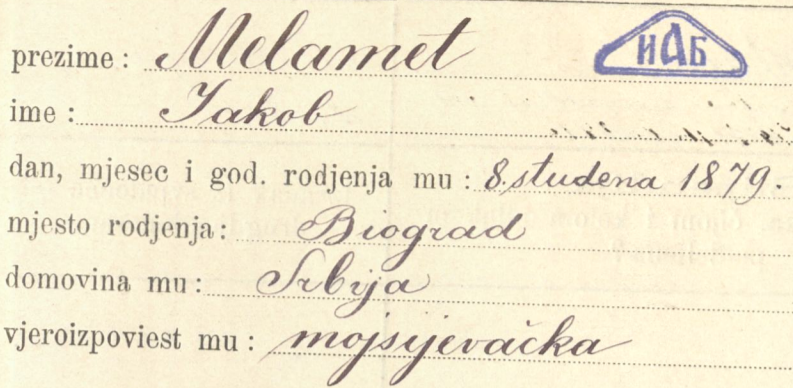 prezime: Melamet
ИАБ
ime: Jakob
dan, mjesec i god. rodjenja mu: 8. studena 1879.
mjesto rodjenja: Biograd
domovina mu: Srbija
vjeroizpoviest mu: mojsijevačka